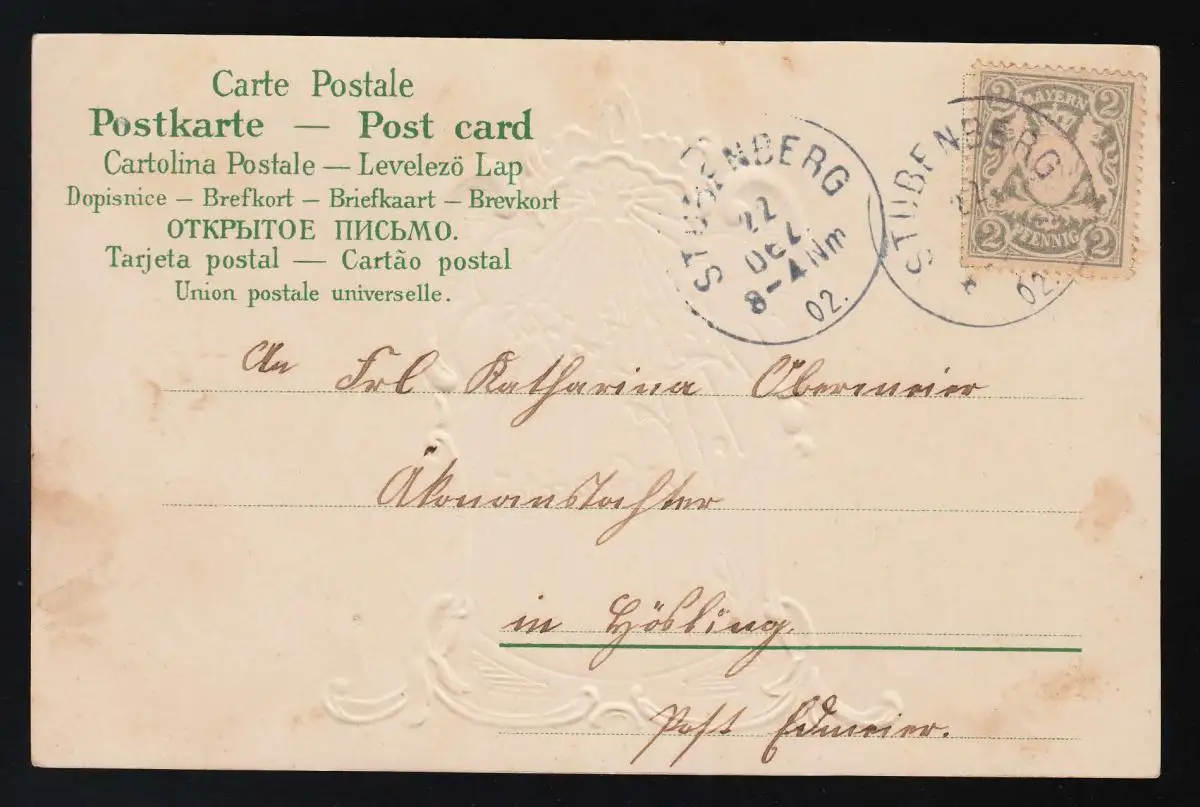 Carte Postale
Postkarte — Post card
Cartolina Postale — Levelezö Lap
Dopisnice — Brefkort — Briefkaart — Brevkort
ОТКРЫТОЕ ПИСЬМО.
Tarjeta postal — Cartão postal
Union postale universelle.
STUBENBERG
22
DEZ
8-4 Nm
02.
STUBENBERG
02.
2 BAYERN 2
2 PFENNIG 2
An Frl Katharina Obermeier
Ökonomstochter
in Hösling.
Post Edmeier.